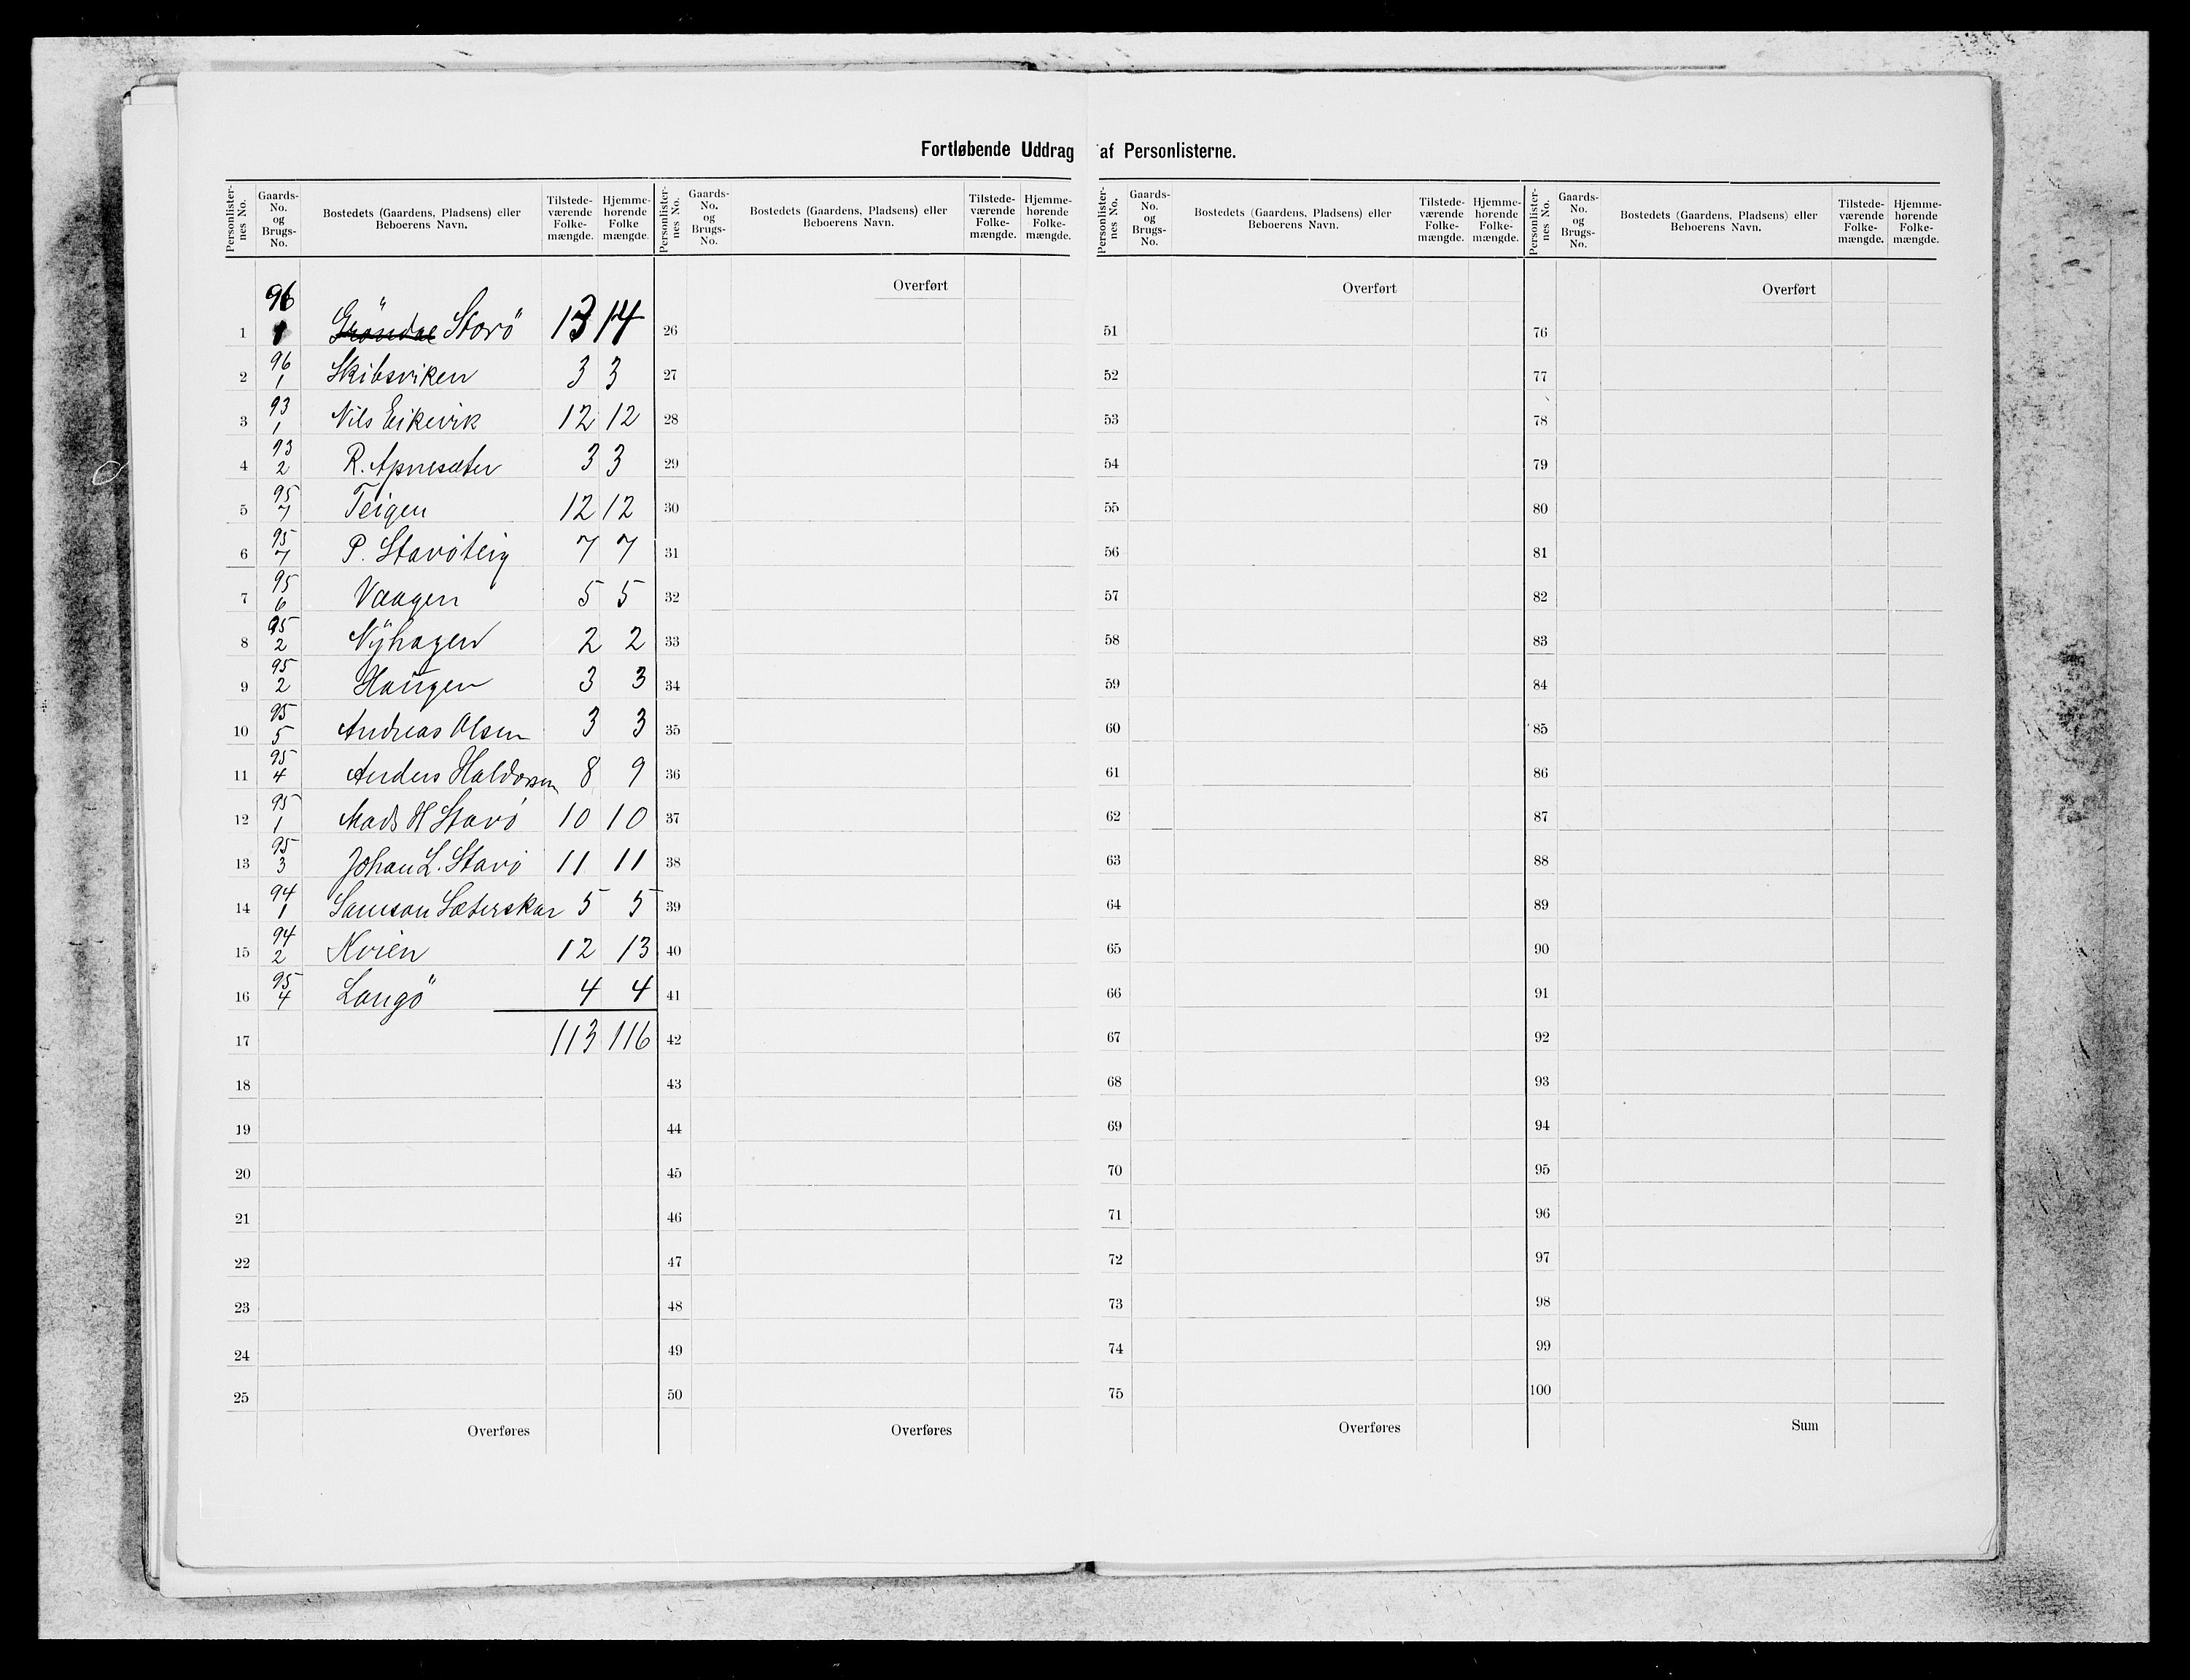 Fortløbende Uddrag af Personlisterne.
Personlister-nes No. Gaards-No. og Brugs-No. Bostedets (Gaardens, Pladsens) eller Beboerens Navn. Tilstede-værende Folke-mængde. Hjemme-hørende Folke mængde.
1 96 1 Gröndal Storö 13 14
2 96 1 Skibsviken 3 3
3 93 1 Nils Eikevik 12 12
4 93 2 R. Apnesæter 3 3
5 95 7 Teigen 12 12
6 95 7 P. Stavöteig 7 7
7 95 6 Vaagen 5 5
8 95 2 Nyhagen 2 2
9 95 2 Haugen 3 3
10 95 5 Andreas Olsen 3 3
11 95 4 Anders Haldorsen 8 9
12 95 1 Mads H Stavö 10 10
13 95 3 Johan L. Stavö 11 11
14 94 1 Samson Sæterskar 5 5
15 94 2 Kvien 12 13
16 95 4 Langö 4 4
17 113 116
18
19
20
21
22
23
24
25
Overføres
Personlister-nes No. Gaards-No. og Brugs-No. Bostedets (Gaardens, Pladsens) eller Beboerens Navn. Tilstede-værende Folke-mængde. Hjemme-hørende Folke-mængde.
Overført
26
27
28
29
30
31
32
33
34
35
36
37
38
39
40
41
42
43
44
45
46
47
48
49
50
Overføres
Personlister-nes No. Gaards-No. og Brugs-No. Bostedets (Gaardens, Pladsens) eller Beboerens Navn. Tilstede-værende Folke-mængde. Hjemme-hørende Folke-mængde.
Overført
51
52
53
54
55
56
57
58
59
60
61
62
63
64
65
66
67
68
69
70
71
72
73
74
75
Overføres
Personlister-nes No. Gaards-No. og Brugs-No. Bostedets (Gaardens, Pladsens) eller Beboerens Navn. Tilstede-værende Folke-mængde. Hjemme-hørende Folke-mængde.
Overført
76
77
78
79
80
81
82
83
84
85
86
87
88
89
90
91
92
93
94
95
96
97
98
99
100
Sum